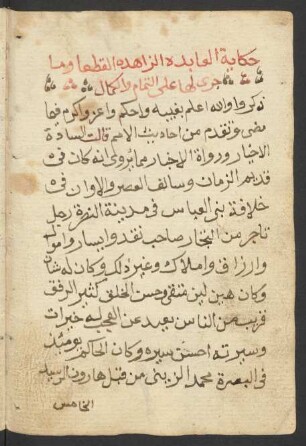 حكاية العابده الزاهده القطعا وما
جرى لها على التمام والكمال
ذكر والله اعلم بغيبه واحكم واعز واكرم فيما
مضى وتقدم من احاديث الامم قالت السادة
الاخيار ورواة الاخبار مما يروى انه كان فى
قديم الزمان وسالف العصر والاوان فى
خلافة بنى العباس فى مدينة البصرة رجل
تاجر من التجار صاحب نقد وايسار واموال
وارزاق واملاك وغير ذلك وكان له شان
وكان هين لين متقى وحسن الخلق كثير الرفق
قريب من الناس بعيد عن العجب خيرات
وسيرته احسن سيره وكان الحاكم يوميذ
فى البصرة محمد الزينى من قبل هارون الرشيد
الخامس